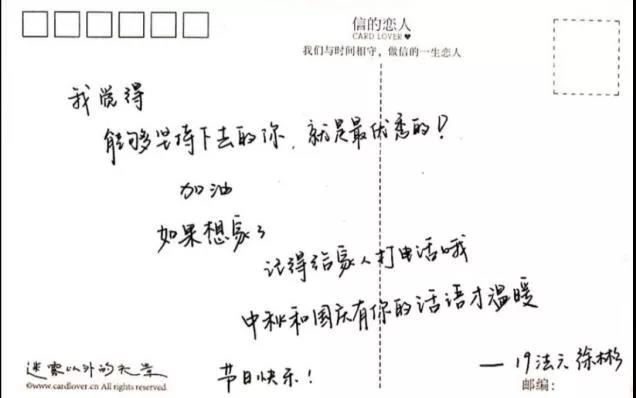 信的恋人
CARD LOVER♥
我们与时间相守，做信的一生恋人
我觉得
能够坚持下去的你，就是最优秀的！
加油
如果想家了
记得给家人打电话哦
中秋和国庆有你的话语才温暖
节日快乐！
—19法六 徐彬
以外的
©www.cardlover.cn All rights reserved
邮编：